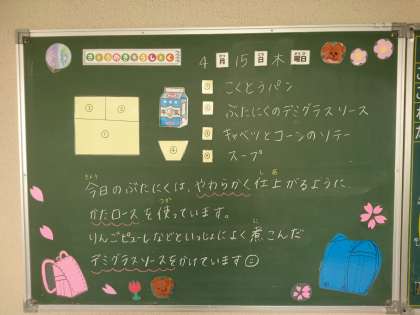 きょうのきゅうしょく
4月15日木曜日
① こくとうパン
② ぶたにくのデミグラスソース
③ キャベツとコーンのソテー
④ スープ
今日のぶたにくは、やわらかく仕上がるように、
かたロースを使っています。
りんごピューレなどといっしょによく煮こんだ
デミグラスソースをかけています